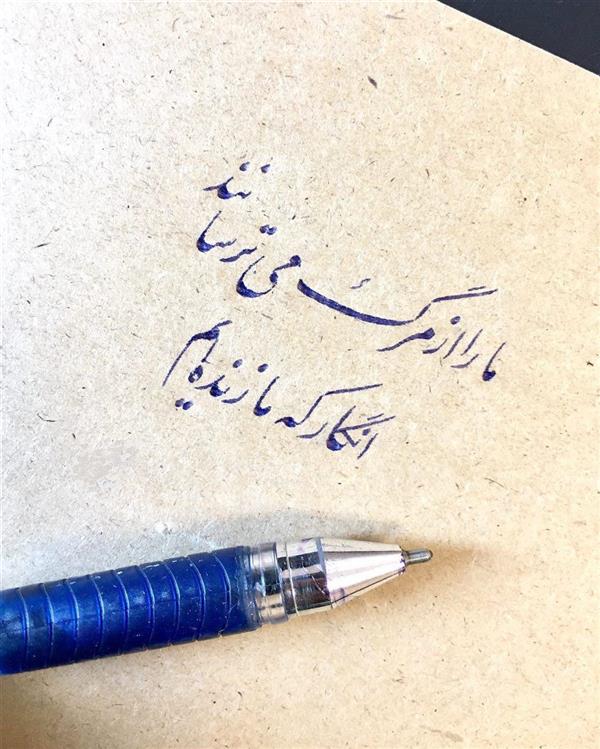 ما را از مرگ می ترسانند
انگار که ما زنده ایم